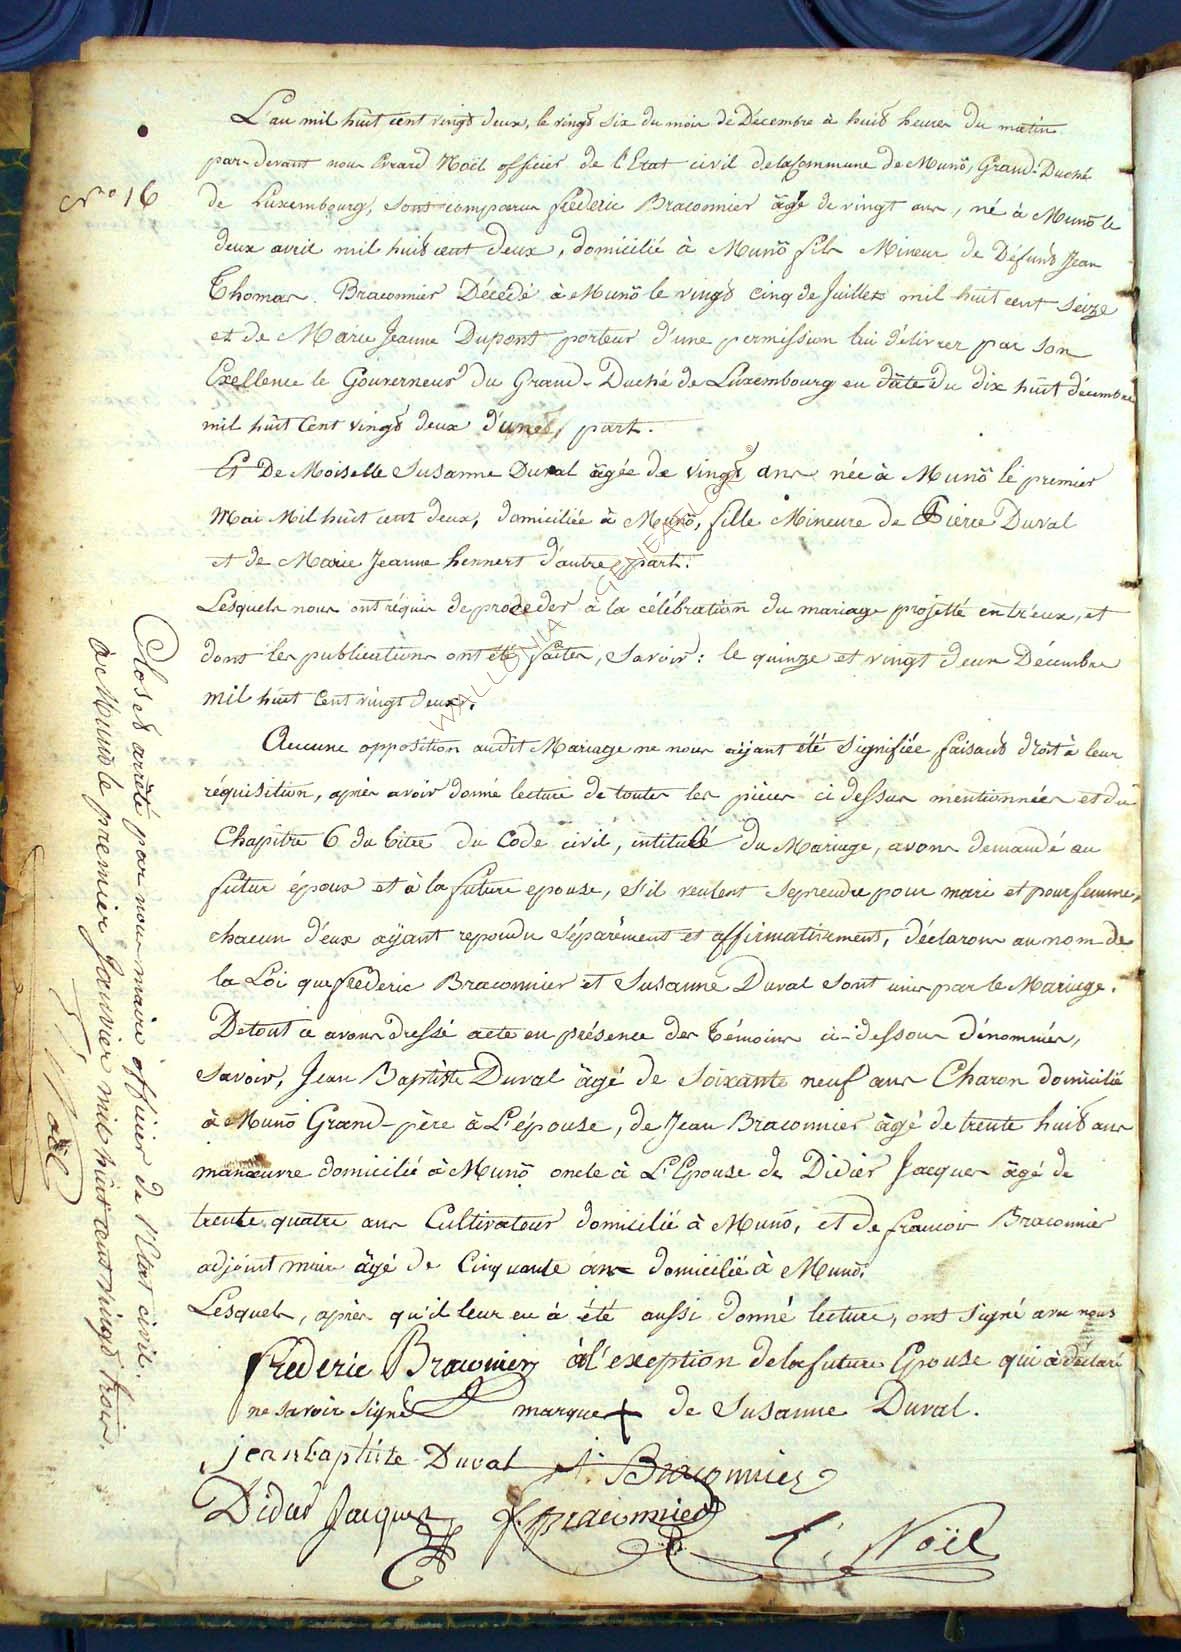 L'an mil huit cent vingt deux, le vingt six du mois de Décembre à huit heures du matin
par-devant nous Evrard Noël officier de l'Etat civil de la Commune de Munô, Grand-Duché
N° 16
de Luxembourg, sont comparus fréderic Braconnier âgé de vingt ans, né à Munô le
deux avril mil huit cent deux, domicilié à Munô fils Mineur de Défunt Jean
Thomas Braconnier Décédé à Munô le vingt cinq de Juillet mil huit cent seize
et de Marie Jeanne Dupont porteur d'une permission lui délivrer par son
Exellence le Gouverneur du Grand-Duché de Luxembourg en date du dix huit décembre
mil huit Cent vingt deux d'une part.
Et DeMoiselle Susanne Duval âgée de vingt ans née à Munô le premier
Mai Mil huit cent deux, domiciliée à Munô, fille Mineure de Pierre Duval
et de Marie Jeanne hennert d'autre part.
Lesquels nous ont réquis de proceder à la célébration du mariage projetté entr'eux, et
dont les publications ont été faites, Savoir: le quinze et vingt deux Décembre
mil huit Cent vingt deux.
Aucune opposition audit Mariage ne nous aÿant été signifiée, faisant droit à leur
réquisition, après avoir donné lecture de toutes les pièces ci dessus mentionnées et du
Chapitre 6 du titre du Code civil, intitulé du Mariage, avons demandé au
futur époux et à la future epouse, s'il veulent se prendre pour mari et pour femme,
chacun d'eux aÿant repondu séparément et affirmativement, déclarons au nom de
la Loi que fréderic Braconnier et Susanne Duval sont unis par le Mariage.
De tout ce avons dressé acte en présence des témoins ci-dessous dénommés,
Savoir, Jean Baptiste Duval âgé de soixante neuf ans Charon domicilié
à Munô Grand-père à L'épouse, de Jean Braconnier âgé de trente huit ans
manœuvre domicilié à Munô oncle à L'Epouse de Didier Jacques âgé de
trente quatre ans Cultivateur domicilié à Munô, et de françois Braconnier
adjoint maire âgé de Cinquante ans domicilié à Munô.
Lesquels, après qu'il leur en à été aussi donné lecture, ont signé avec nous
frederic Braconier à l'exeption de la future Epouse qui à déclaré
ne savoir signé marque + de Susanne Duval.
jean baptiste Duval J. Braconnier
Didier Jacques f. braconnier
E. Noël
Clos et arrêté par nous maire officier de l'Etat civil.
à Munô le premier Janvier mil huit cent vingt trois.
E. Noël
WALLONIA GENEANET ©